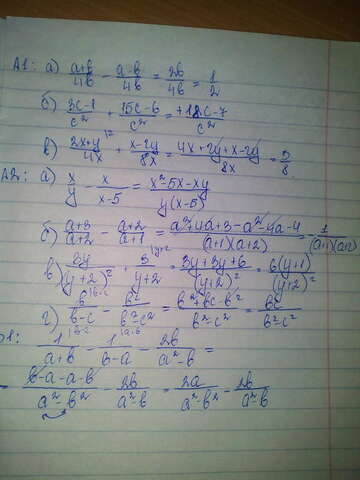 А1: а) (a+b)/4b - (a-b)/4b = 2b/4b = 1/2
б) (3c-1)/c² + (15c-6)/c² = (+18c-7)/c²
в) (2x+y)/4x + (x-2y)/8x = (4x+2y+x-2y)/8x = 5/8
А2: а) x/y - x/(x-5) = (x²-5x-xy)/(y(x-5))
б) (a+3)/(a+2) - (a+2)/(a+1) = (a²+4a+3-a²-4a-4)/((a+1)(a+2)) = -1/((a+1)(a+2))
в) 3y/(y+2)² + 3/(y+2) = (3y+3y+6)/(y+2)² = 6(y+1)/(y+2)²
г) b/(b-c) - b²/(b²-c²) = (b²+bc-b²)/(b²-c²) = bc/(b²-c²)
1: 1/(a+b) - 1/(b-a) - 2b/(a²-b) =
= (b-a-a-b)/(a²-b²) - 2b/(a²-b) = 2a/(a²-b²) - 2b/(a²-b)